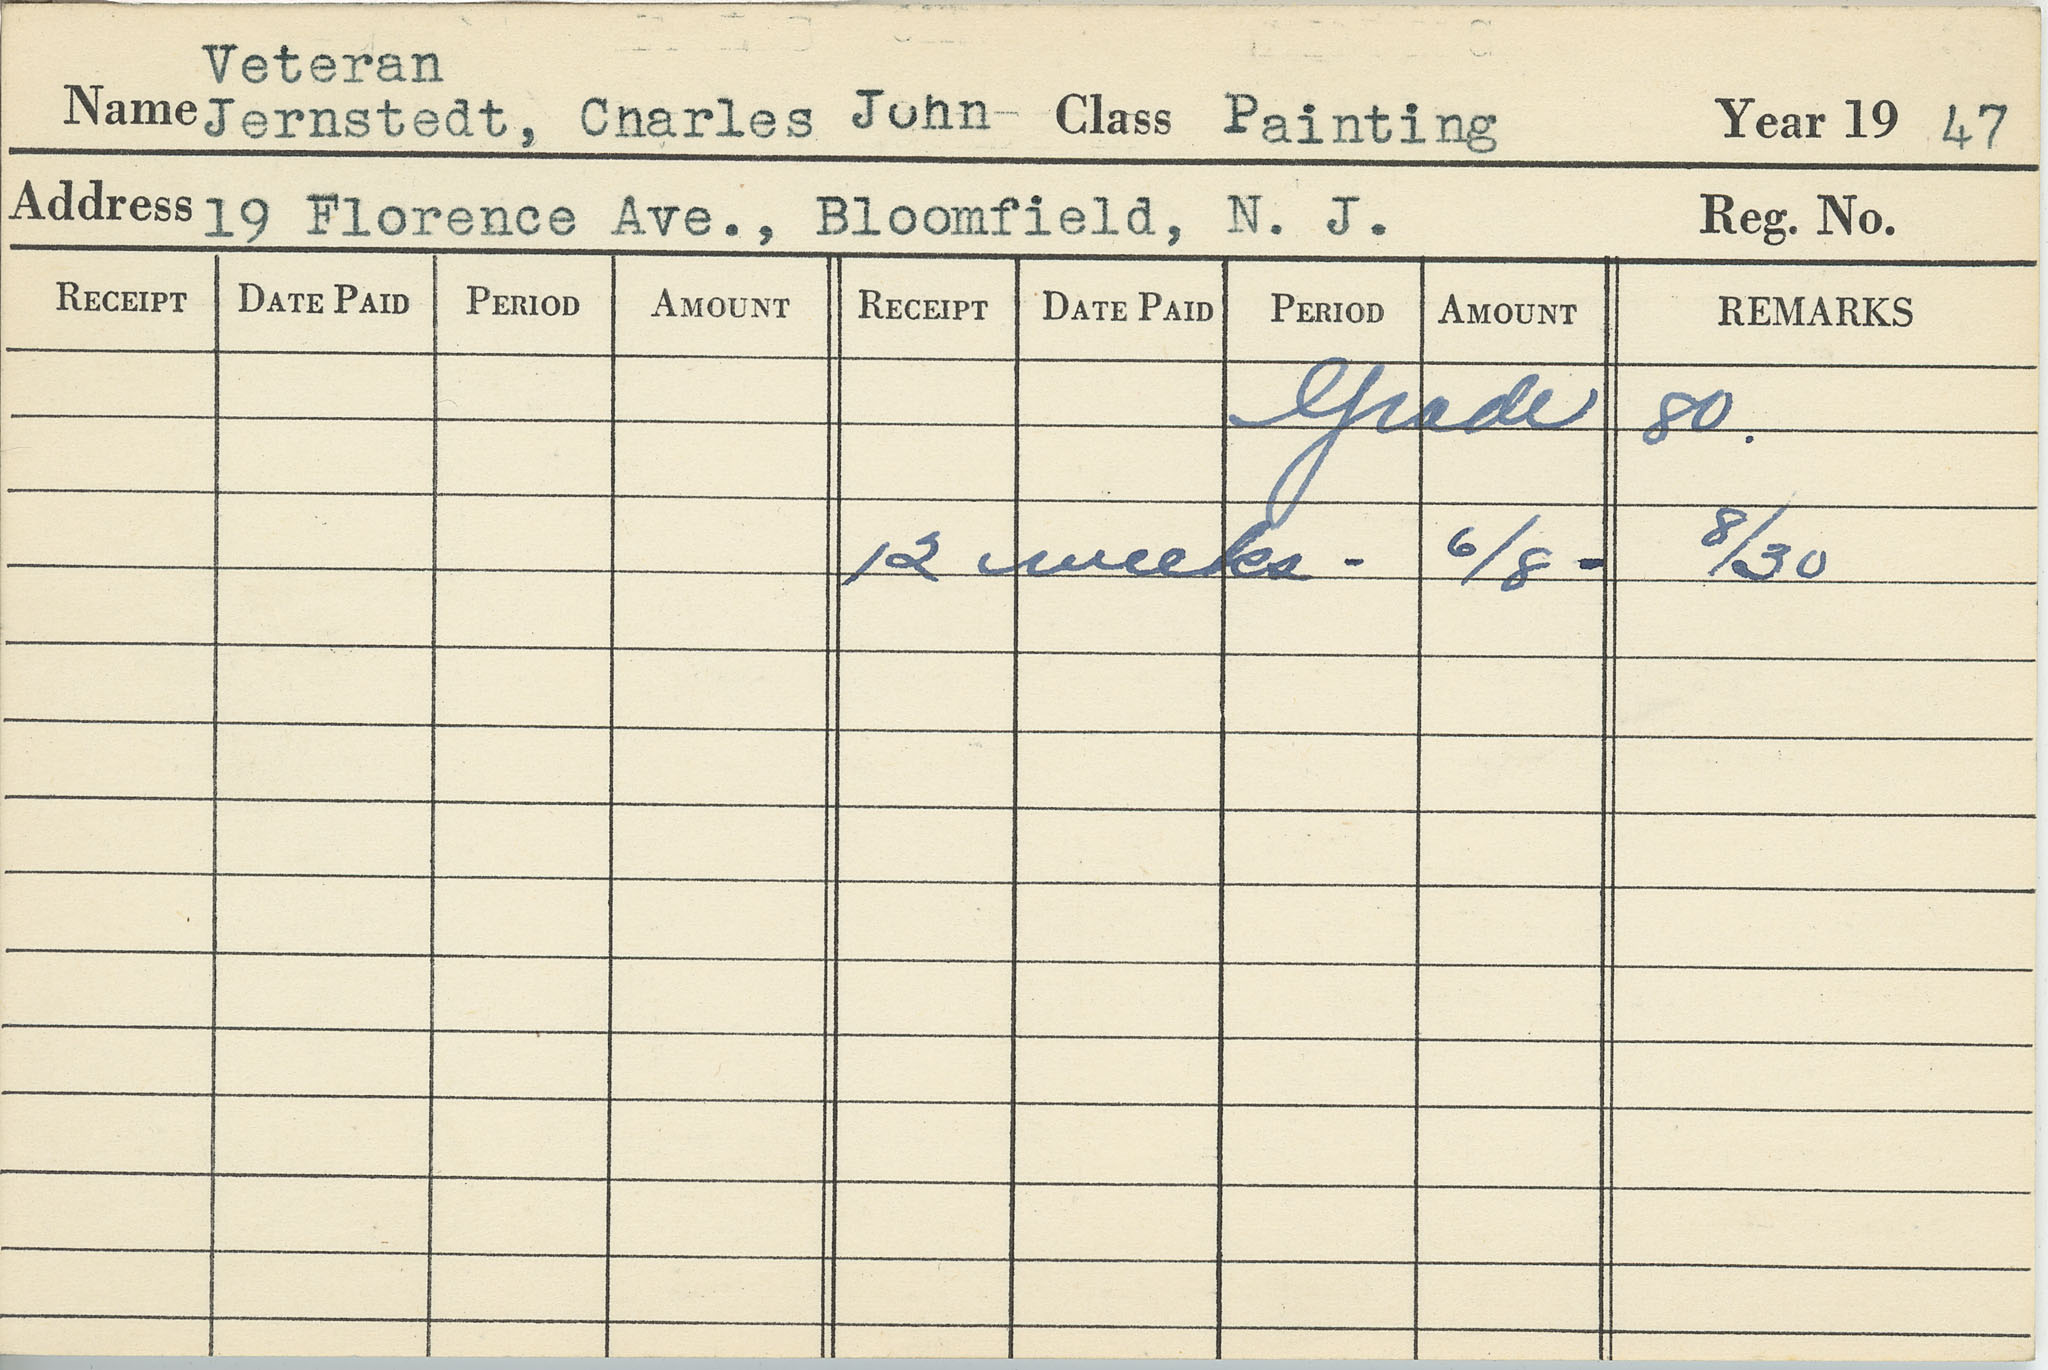 Veteran
Name Jernstedt, Charles John- Class Painting Year 19 47
Address 19 Florence Ave., Bloomfield, N. J. Reg. No.
RECEIPT DATE PAID PERIOD AMOUNT RECEIPT DATE PAID PERIOD AMOUNT REMARKS
Grade 80.
12 weeks - 6/8 - 8/30